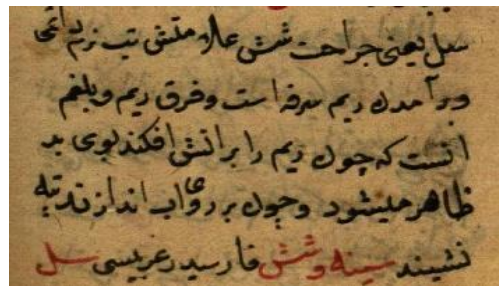 سل یعنی جراحت شش علامتش تب نرم دائمی
و برآمدن ریم سرفه است و فرق ریم و بلغم
انست که چون ریم را برانش افکند بوی بد
ظاهر میشود و چون بر روی اب اندازند بته
نشیند سینه و شش فارسیدر عربیسی سل